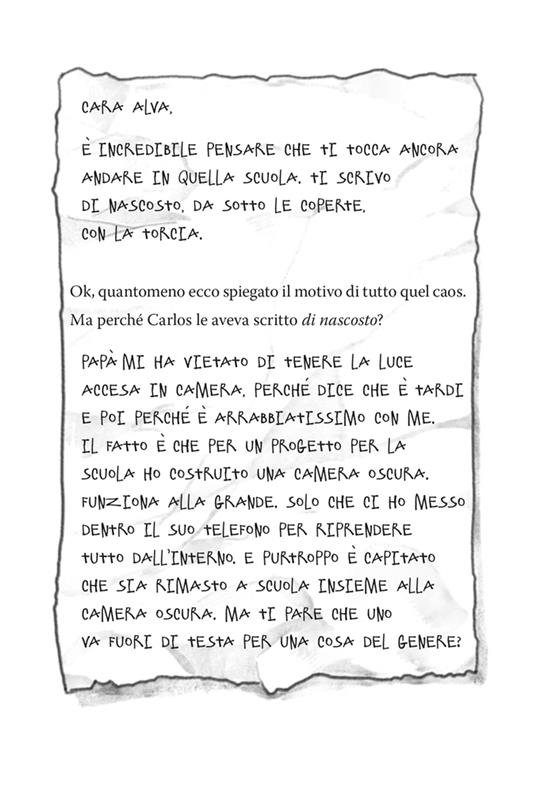 CARA ALVA,
È INCREDIBILE PENSARE CHE TI TOCCA ANCORA
ANDARE IN QUELLA SCUOLA. TI SCRIVO
DI NASCOSTO, DA SOTTO LE COPERTE,
CON LA TORCIA.
Ok, quantomeno ecco spiegato il motivo di tutto quel caos.
Ma perché Carlos le aveva scritto di nascosto?
PAPÀ MI HA VIETATO DI TENERE LA LUCE
ACCESA IN CAMERA, PERCHÉ DICE CHE È TARDI
E POI PERCHÉ È ARRABBIATISSIMO CON ME.
IL FATTO È CHE PER UN PROGETTO PER LA
SCUOLA HO COSTRUITO UNA CAMERA OSCURA.
FUNZIONA ALLA GRANDE, SOLO CHE CI HO MESSO
DENTRO IL SUO TELEFONO PER RIPRENDERE
TUTTO DALL'INTERNO. E PURTROPPO È CAPITATO
CHE SIA RIMASTO A SCUOLA INSIEME ALLA
CAMERA OSCURA. MA TI PARE CHE UNO
VA FUORI DI TESTA PER UNA COSA DEL GENERE?